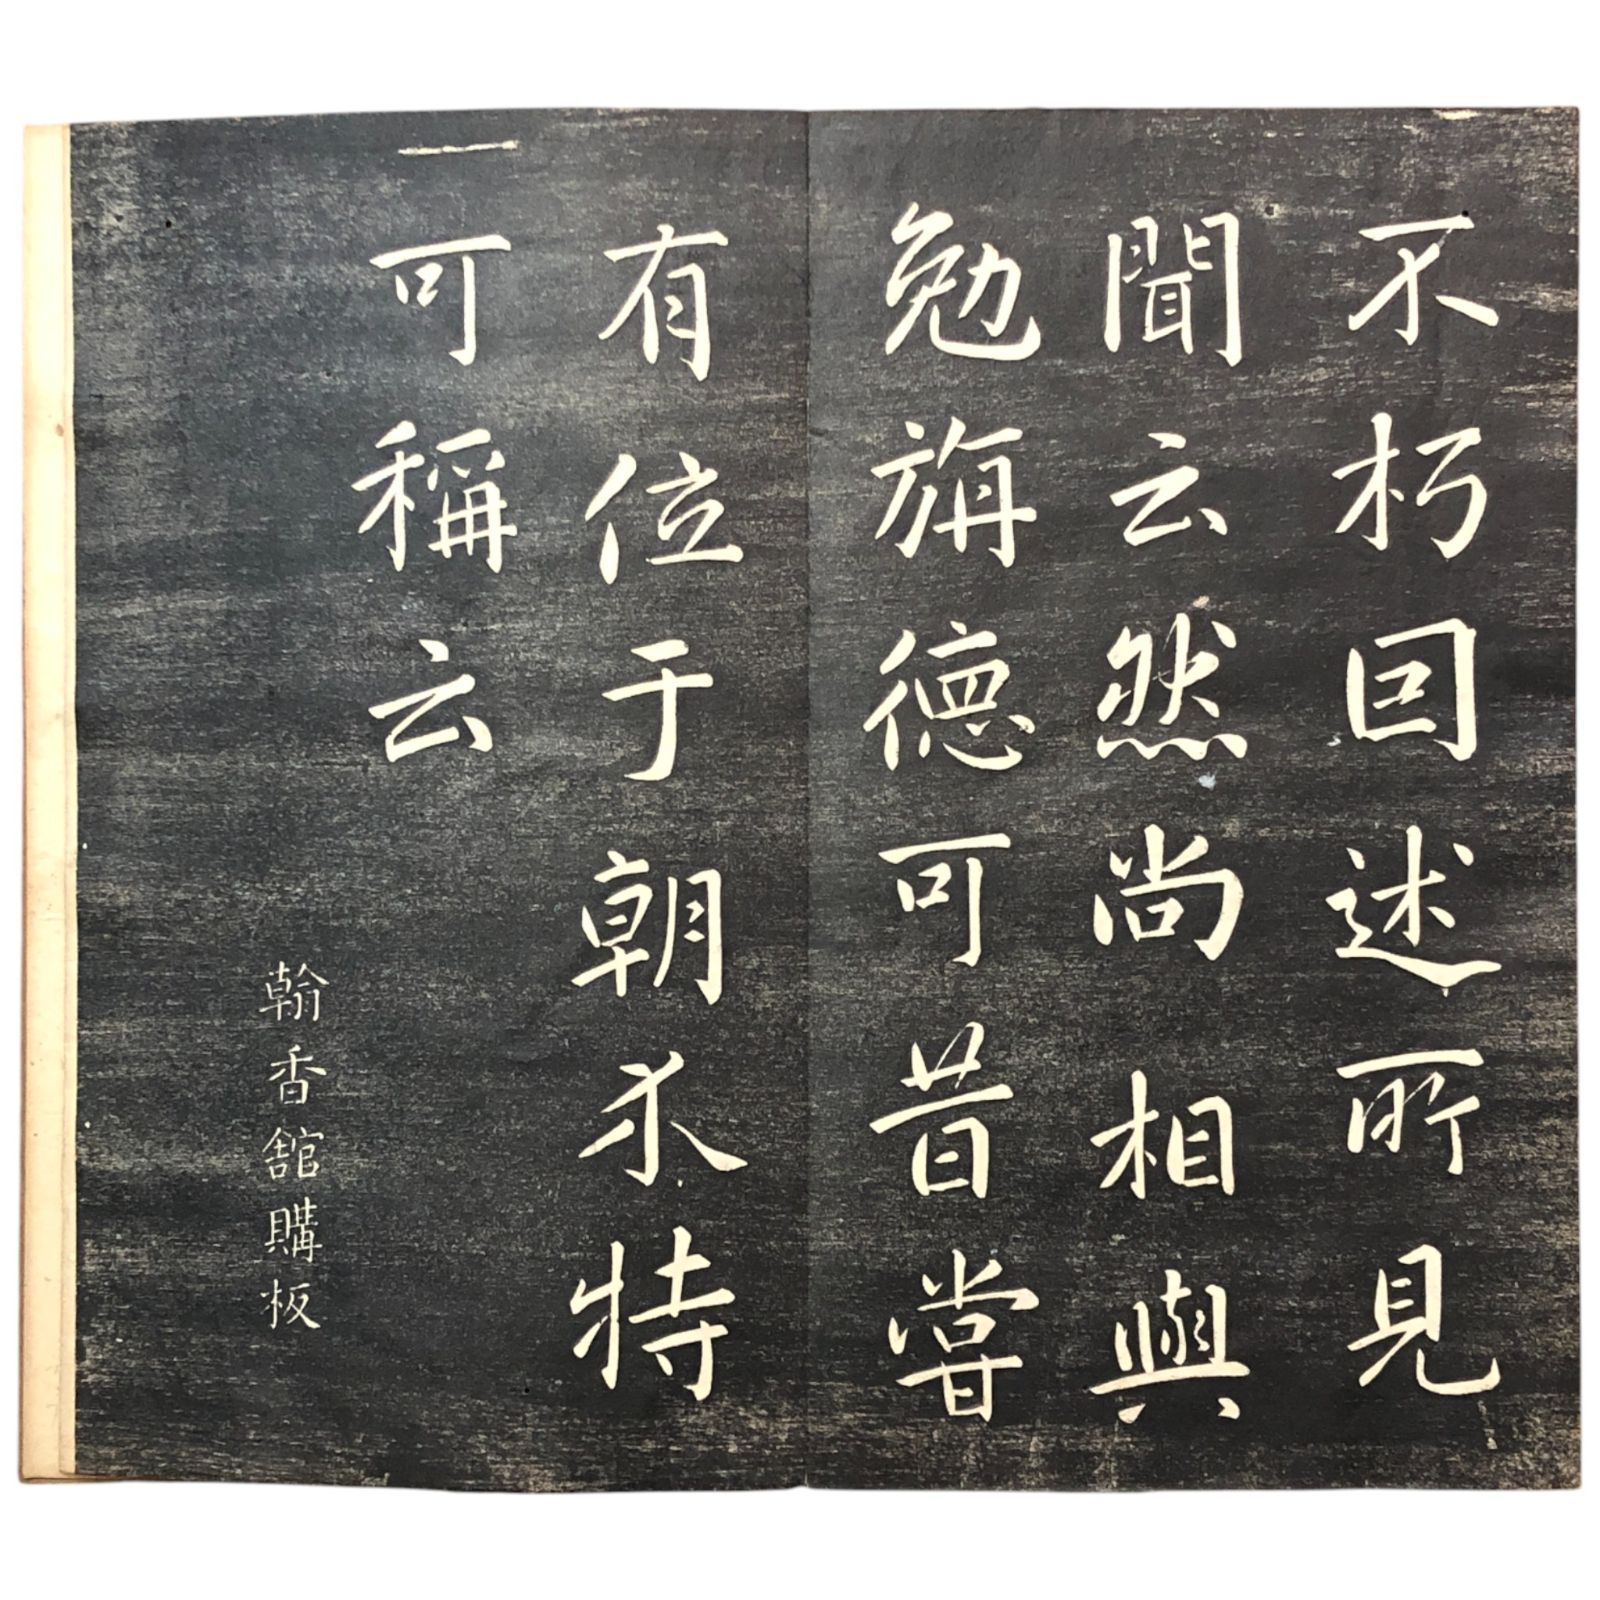 不朽因述所見
聞云然尚相與
勉旃德可昔嘗
有位于朝特
可稱云
翰香館購板